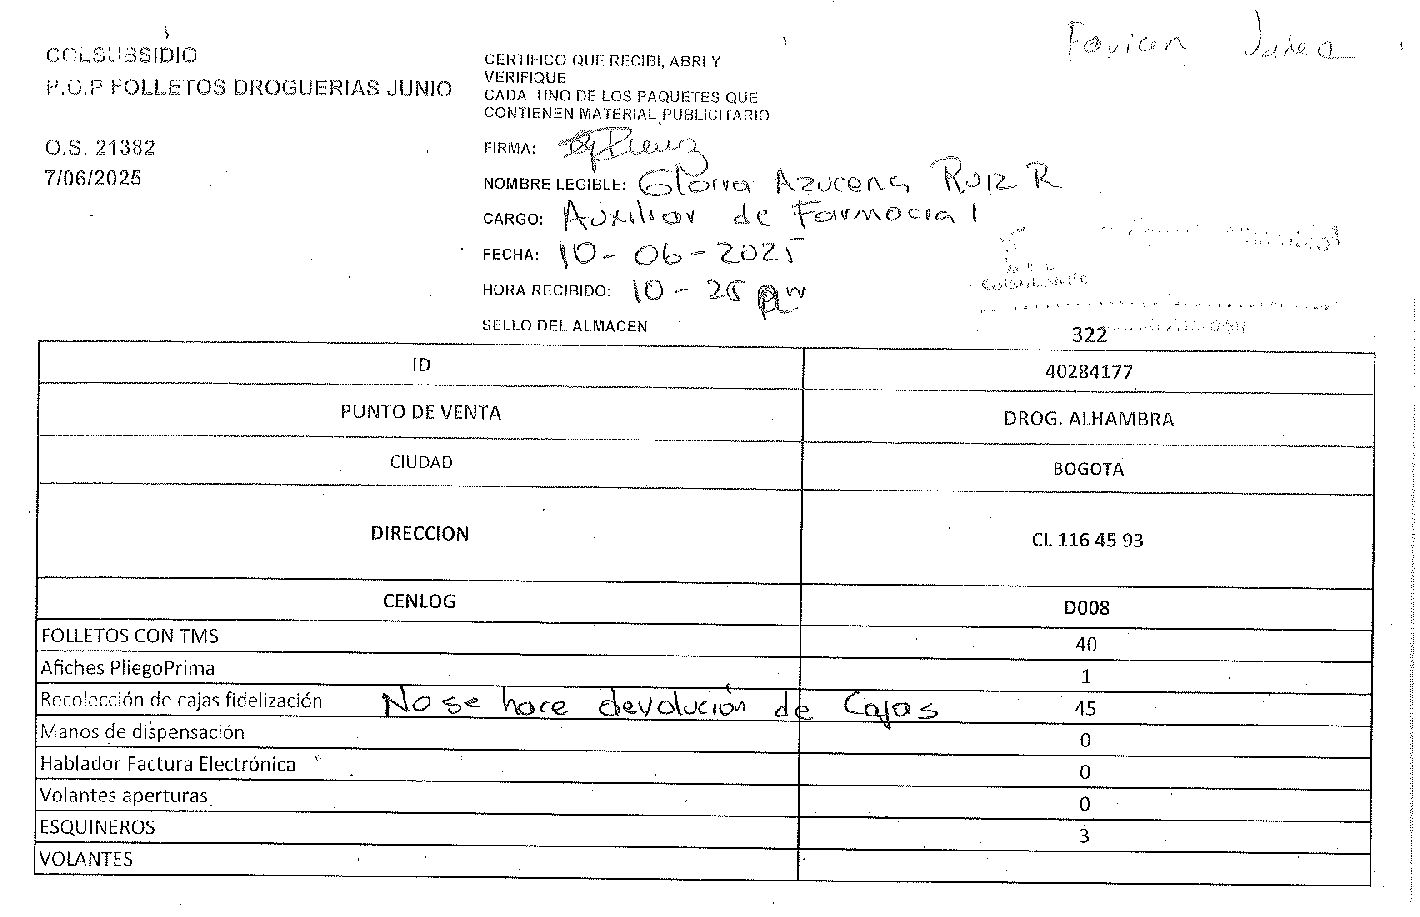 COLSUBSIDIO
P.O.P FOLLETOS DROGUERIAS JUNIO
O.S. 21382
7/06/2025
CERTIFICO QUE RECIBI, ABRI Y
VERIFIQUE
CADA UNO DE LOS PAQUETES QUE
CONTIENEN MATERIAL PUBLICITARIO
FIRMA:
NOMBRE LEGIBLE: Gloria Azucena Ruiz R
CARGO: Auxiliar de Farmacia 1
FECHA: 10-06-2025
HORA RECIBIDO: 10-26
SELLO DEL ALMACEN
322
ID 40284177
PUNTO DE VENTA DROG. ALHAMBRA
CIUDAD BOGOTA
DIRECCION CL 116 45 93
CENLOG D008
FOLLETOS CON TMS 40
Afiches PliegoPrima 1
Recolección de cajas fidelización No se hace devolución de Cajas 15
Manos de dispensación 0
Hablador Factura Electrónica 0
Volantes aperturas 0
ESQUINEROS 3
VOLANTES